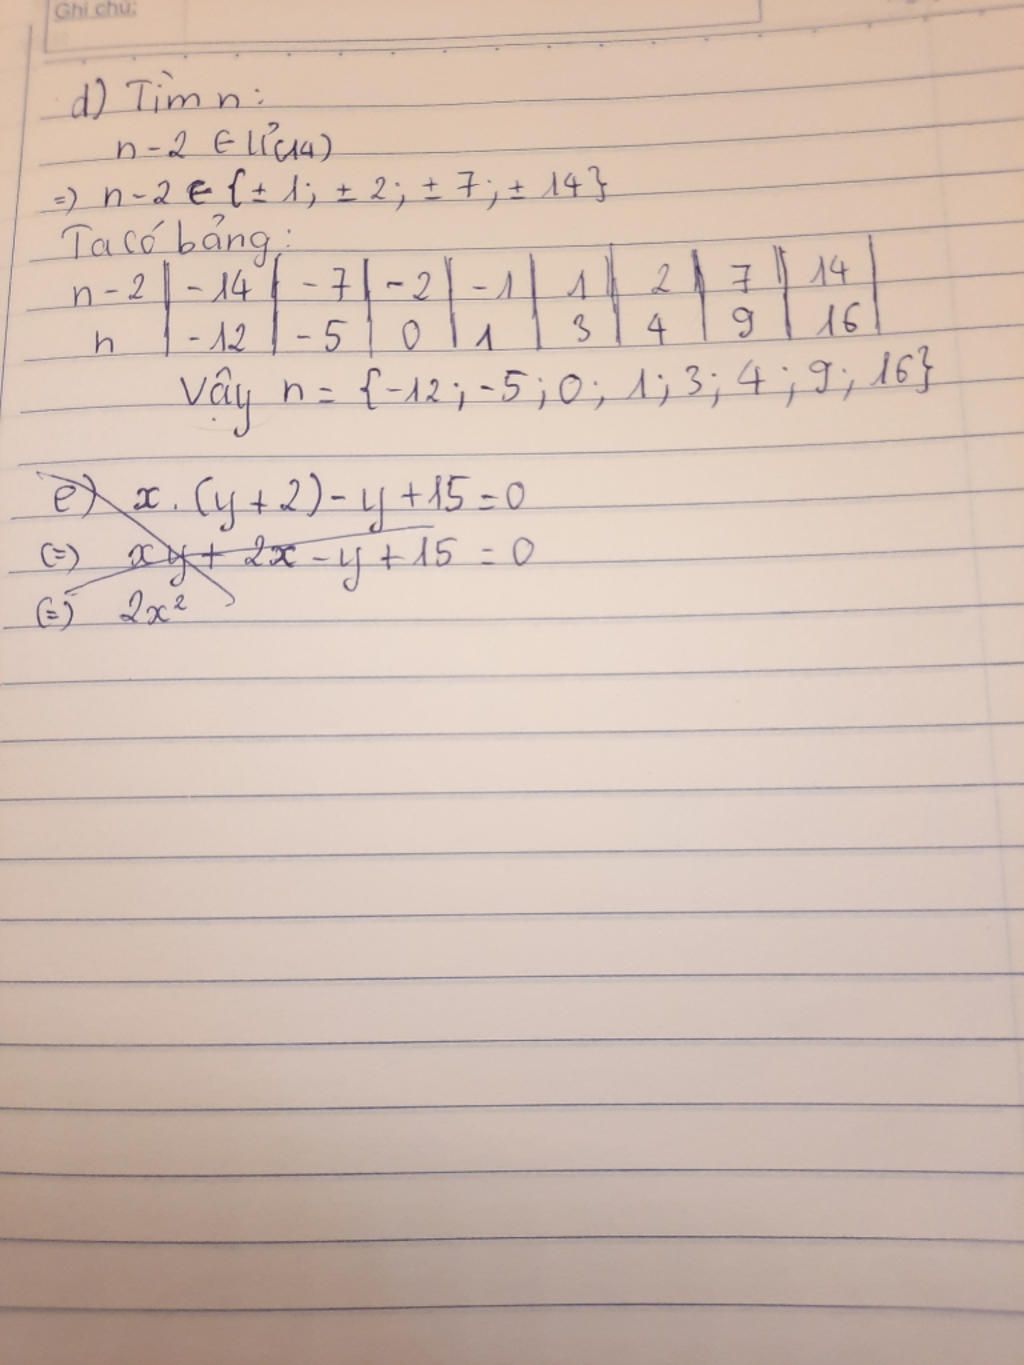 Ghi chú:
d) Tìm n:
n-2 ∈ Ư(14)
=) n-2 ∈ {±1; ±2; ±7; ±14}
Ta có bảng:
n-2 | -14 | -7 | -2 | -1 | 1 | 2 | 7 | 14 |
n | -12 | -5 | 0 | 1 | 3 | 4 | 9 | 16 |
Vậy n = {-12; -5; 0; 1; 3; 4; 9; 16}
e) x.(y+2)-y+15=0
(=) xy+2x-y+15=0
(=) 2x²